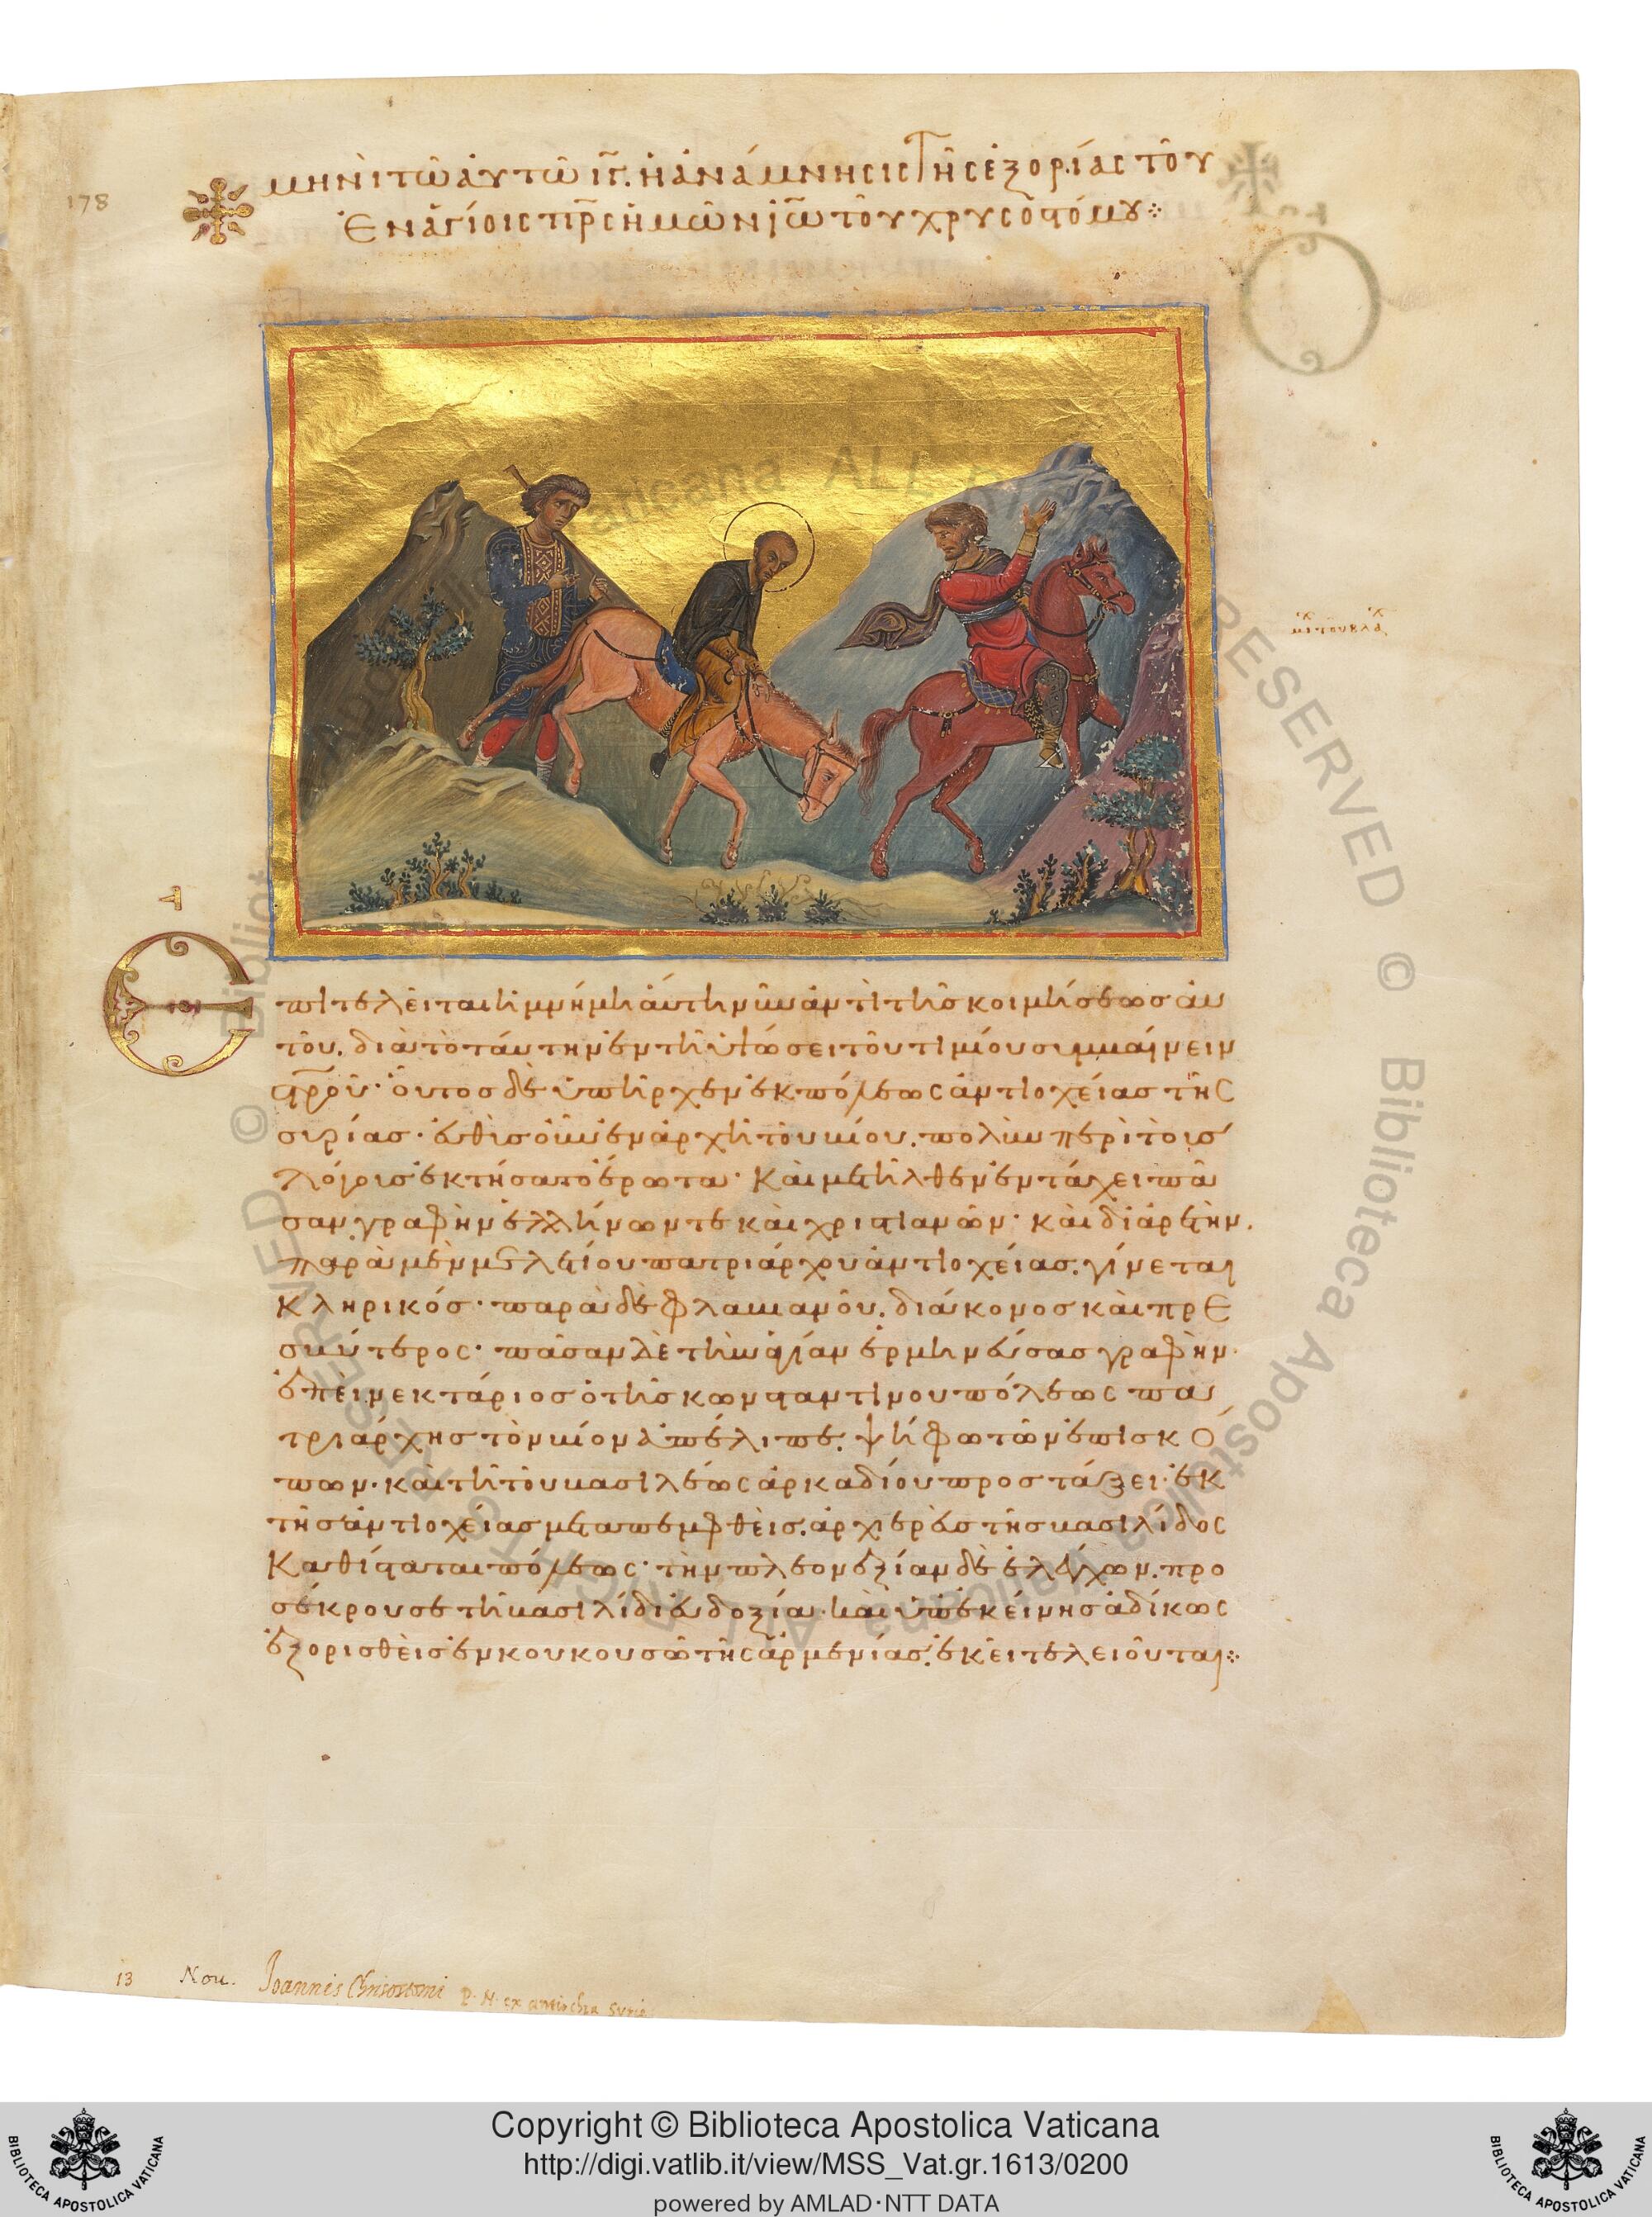 178
μηνὶ τῶ ἀυτῶ ιγ̅. ἡ ἀνάμνησις τῆς ἐξορίας τοῦ
ἐν ἁγίοις π̅ρ̅ς ἡμῶν ἰω̅ τοῦ χρυσοστόμου
Ἐπιτελεῖται ἡ μνήμη ἀύτη νῦν ἀντὶ τῆς κοιμήσεως ἀυ
τοῦ. διὰ τὸ ταύτην ἐν τῆ ὑψώσει τοῦ τιμίου συμβαίνειν
στ̅ρ̅οῦ· οὗτος δὲ ὑπῆρχεν ἐκ πόλεως ἀντιοχείας τῆς
συρίας· ἐυθὺς οὖν ἐν ἀρχῆ τοῦ βίου. πολὺν περὶ τοὺς
λόγους ἐκτήσατο ἔρωτα· καὶ μετῆλθεν ἐν τάχει πᾶ
σαν γραφὴν ἑλλήνων τε καὶ χριστιανῶν· καὶ δὶ ἀρετὴν.
παρὰ μὲν μελετίου πατριάρχου ἀντιοχείας. γίνεται
κληρικός· παρὰ δὲ φλαβιανοῦ. διάκονος καὶ πρε
σβύτερος· πᾶσαν δὲ τὴν ἁγίαν ἑρμηνεύσας γραφὴν·
ἐπεὶ νεκτάριος ὁ τῆς κωνσταντίνου πόλεως πα
τριάρχης τὸν βίον ἀπέλιπε. ψήφω τῶν ἐπισκό
πων· καὶ τῆ τοῦ βασιλέως ἀρκαδίου προστάξει· ἐκ
τῆς ἀντιοχείας μεταπεμφθεὶς. ἀρχιερεὺς τῆς βασιλίδος
καθίσταται πόλεως· τὴν πλεονεξίαν δὲ ἐλέγχων. προ
σέκρουσε τῆ βασιλίδι ἐυδοξία· καὶ ὑπ' ἐκείνης ἀδίκως
ἐξορισθεὶς ἐν κουκουσῶ τῆς ἀρμενίας. ἐκεῖ τελειοῦται
13 Nou. Joannis Chrisostomi P. N. ex antiochia Syrie
Copyright © Biblioteca Apostolica Vaticana
http://digi.vatlib.it/view/MSS_Vat.gr.1613/0200
powered by AMLAD·NTT DATA
BIBLIOTECA APOSTOLICA VATICANA
BIBLIOTECA APOSTOLICA VATICANA